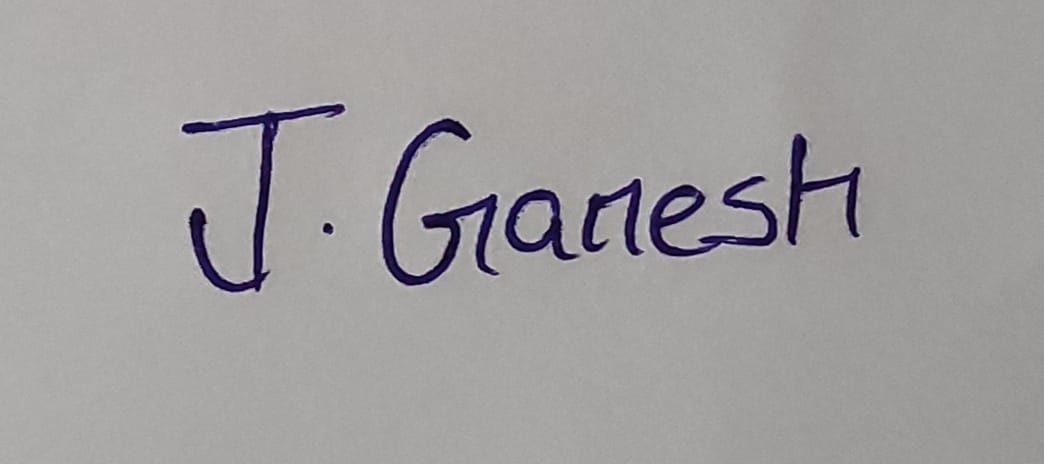 J. Ganesh